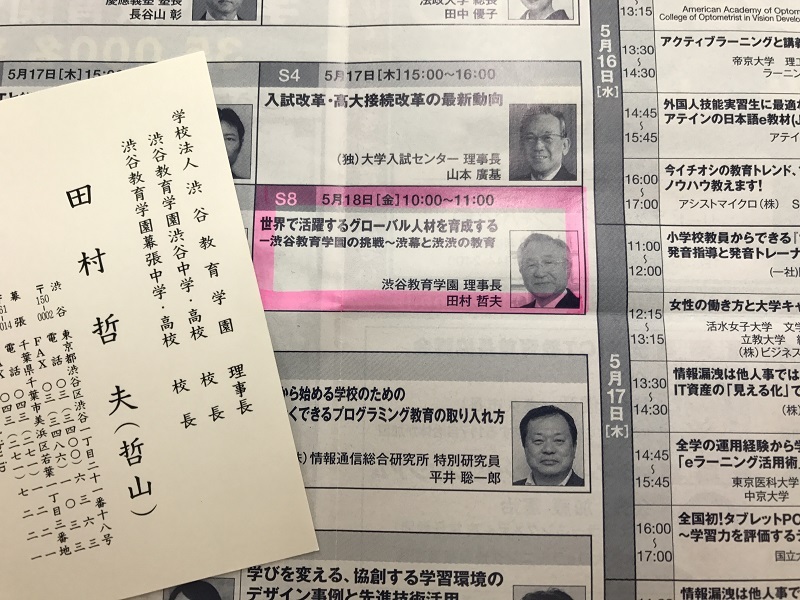 慶應義塾 塾長
長谷山 彰
法政大学 総長
田中 優子
5月17日[木]15:00~
S4 5月17日[木]15:00~16:00
入試改革・高大接続改革の最新動向
(独)大学入試センター 理事長
山本 廣基
S8 5月18日[金]10:00~11:00
世界で活躍するグローバル人材を育成する
ー渋谷教育学園の挑戦~渋幕と渋渋の教育
渋谷教育学園 理事長
田村 哲夫
から始める学校のための
くできるプログラミング教育の取り入れ方
情報通信総合研究所 特別研究員
平井 聡一郎
学びを変える、協創する学習環境の
デザイン事例と先進技術活用
学校法人 渋谷教育学園 理事長
渋谷教育学園渋谷中学・高校 校長
渋谷教育学園幕張中学・高校 校長
田村哲夫(哲山)
渋谷 東京都渋谷区渋谷一丁目二十一番十八号
〒150-0002
電話
FAX
幕張 千葉県千葉市美浜区若葉一丁目三番地
電話
5月16日[水]
13:15
American Academy of Optomet
College of Optometrist in Vision Develo
13:30~14:30
アクティブラーニングと講
帝京大学 理工
ラーニン
14:45~15:45
外国人技能実習生に最適な
アテインの日本語e教材(J
アテイ
16:00~17:00
今イチオシの教育トレンド、
ノウハウ教えます!
アシストマイクロ(株) S
5月17日[木]
11:00~12:00
小学校教員からできる「
発音指導と発音トレーナ
(一社)
12:15~13:15
女性の働き方と大学キャ
活水女子大学 文学
立教大学 経
(株)ビジネス
13:30~14:30
情報漏洩は他人事では
IT資産の「見える化」で
(株)
14:45~15:45
全学の運用経験から学
「eラーニング活用術」
東京医科大学
中京大学
16:00~17:00
全国初!タブレットPC
~学習力を評価するテ
国立大
情報漏洩は他人事では